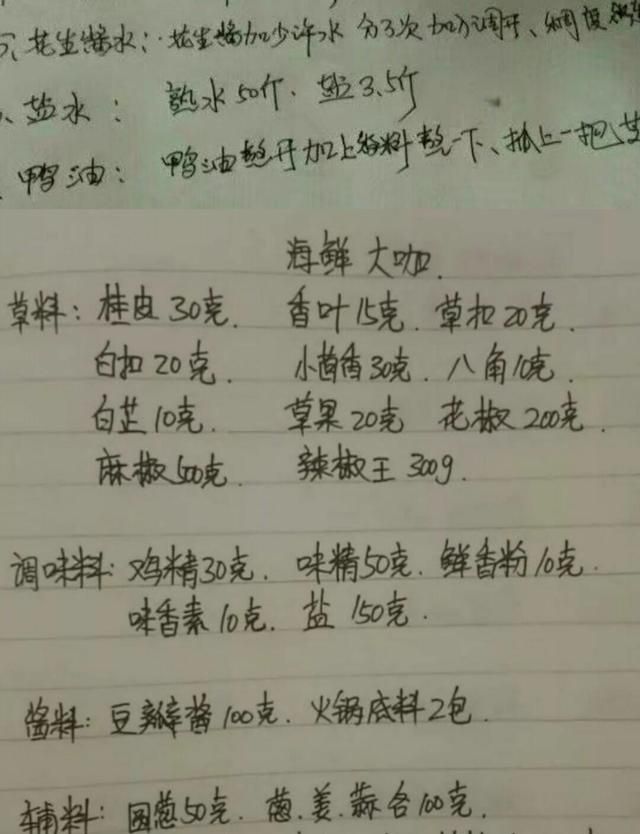 花生酱水：花生酱加少许水 分3次加入调开、稠度
盐水： 热水50斤、盐3.5斤
鸭油： 鸭油熬开加上香料熬一下、抓上一把
海鲜大咖.
草料：桂皮30克. 香叶15克. 草扣20克.
白扣20克. 小茴香30克. 八角10克.
白芷10克. 草果20克 花椒200克.
麻椒500克. 辣椒王300g.
调味料：鸡精30克. 味精50克. 鲜香粉10克.
味香素10克. 盐150克.
酱料：豆瓣酱100克. 火锅底料2包.
辅料：圆葱50克. 葱.姜.蒜各100克.